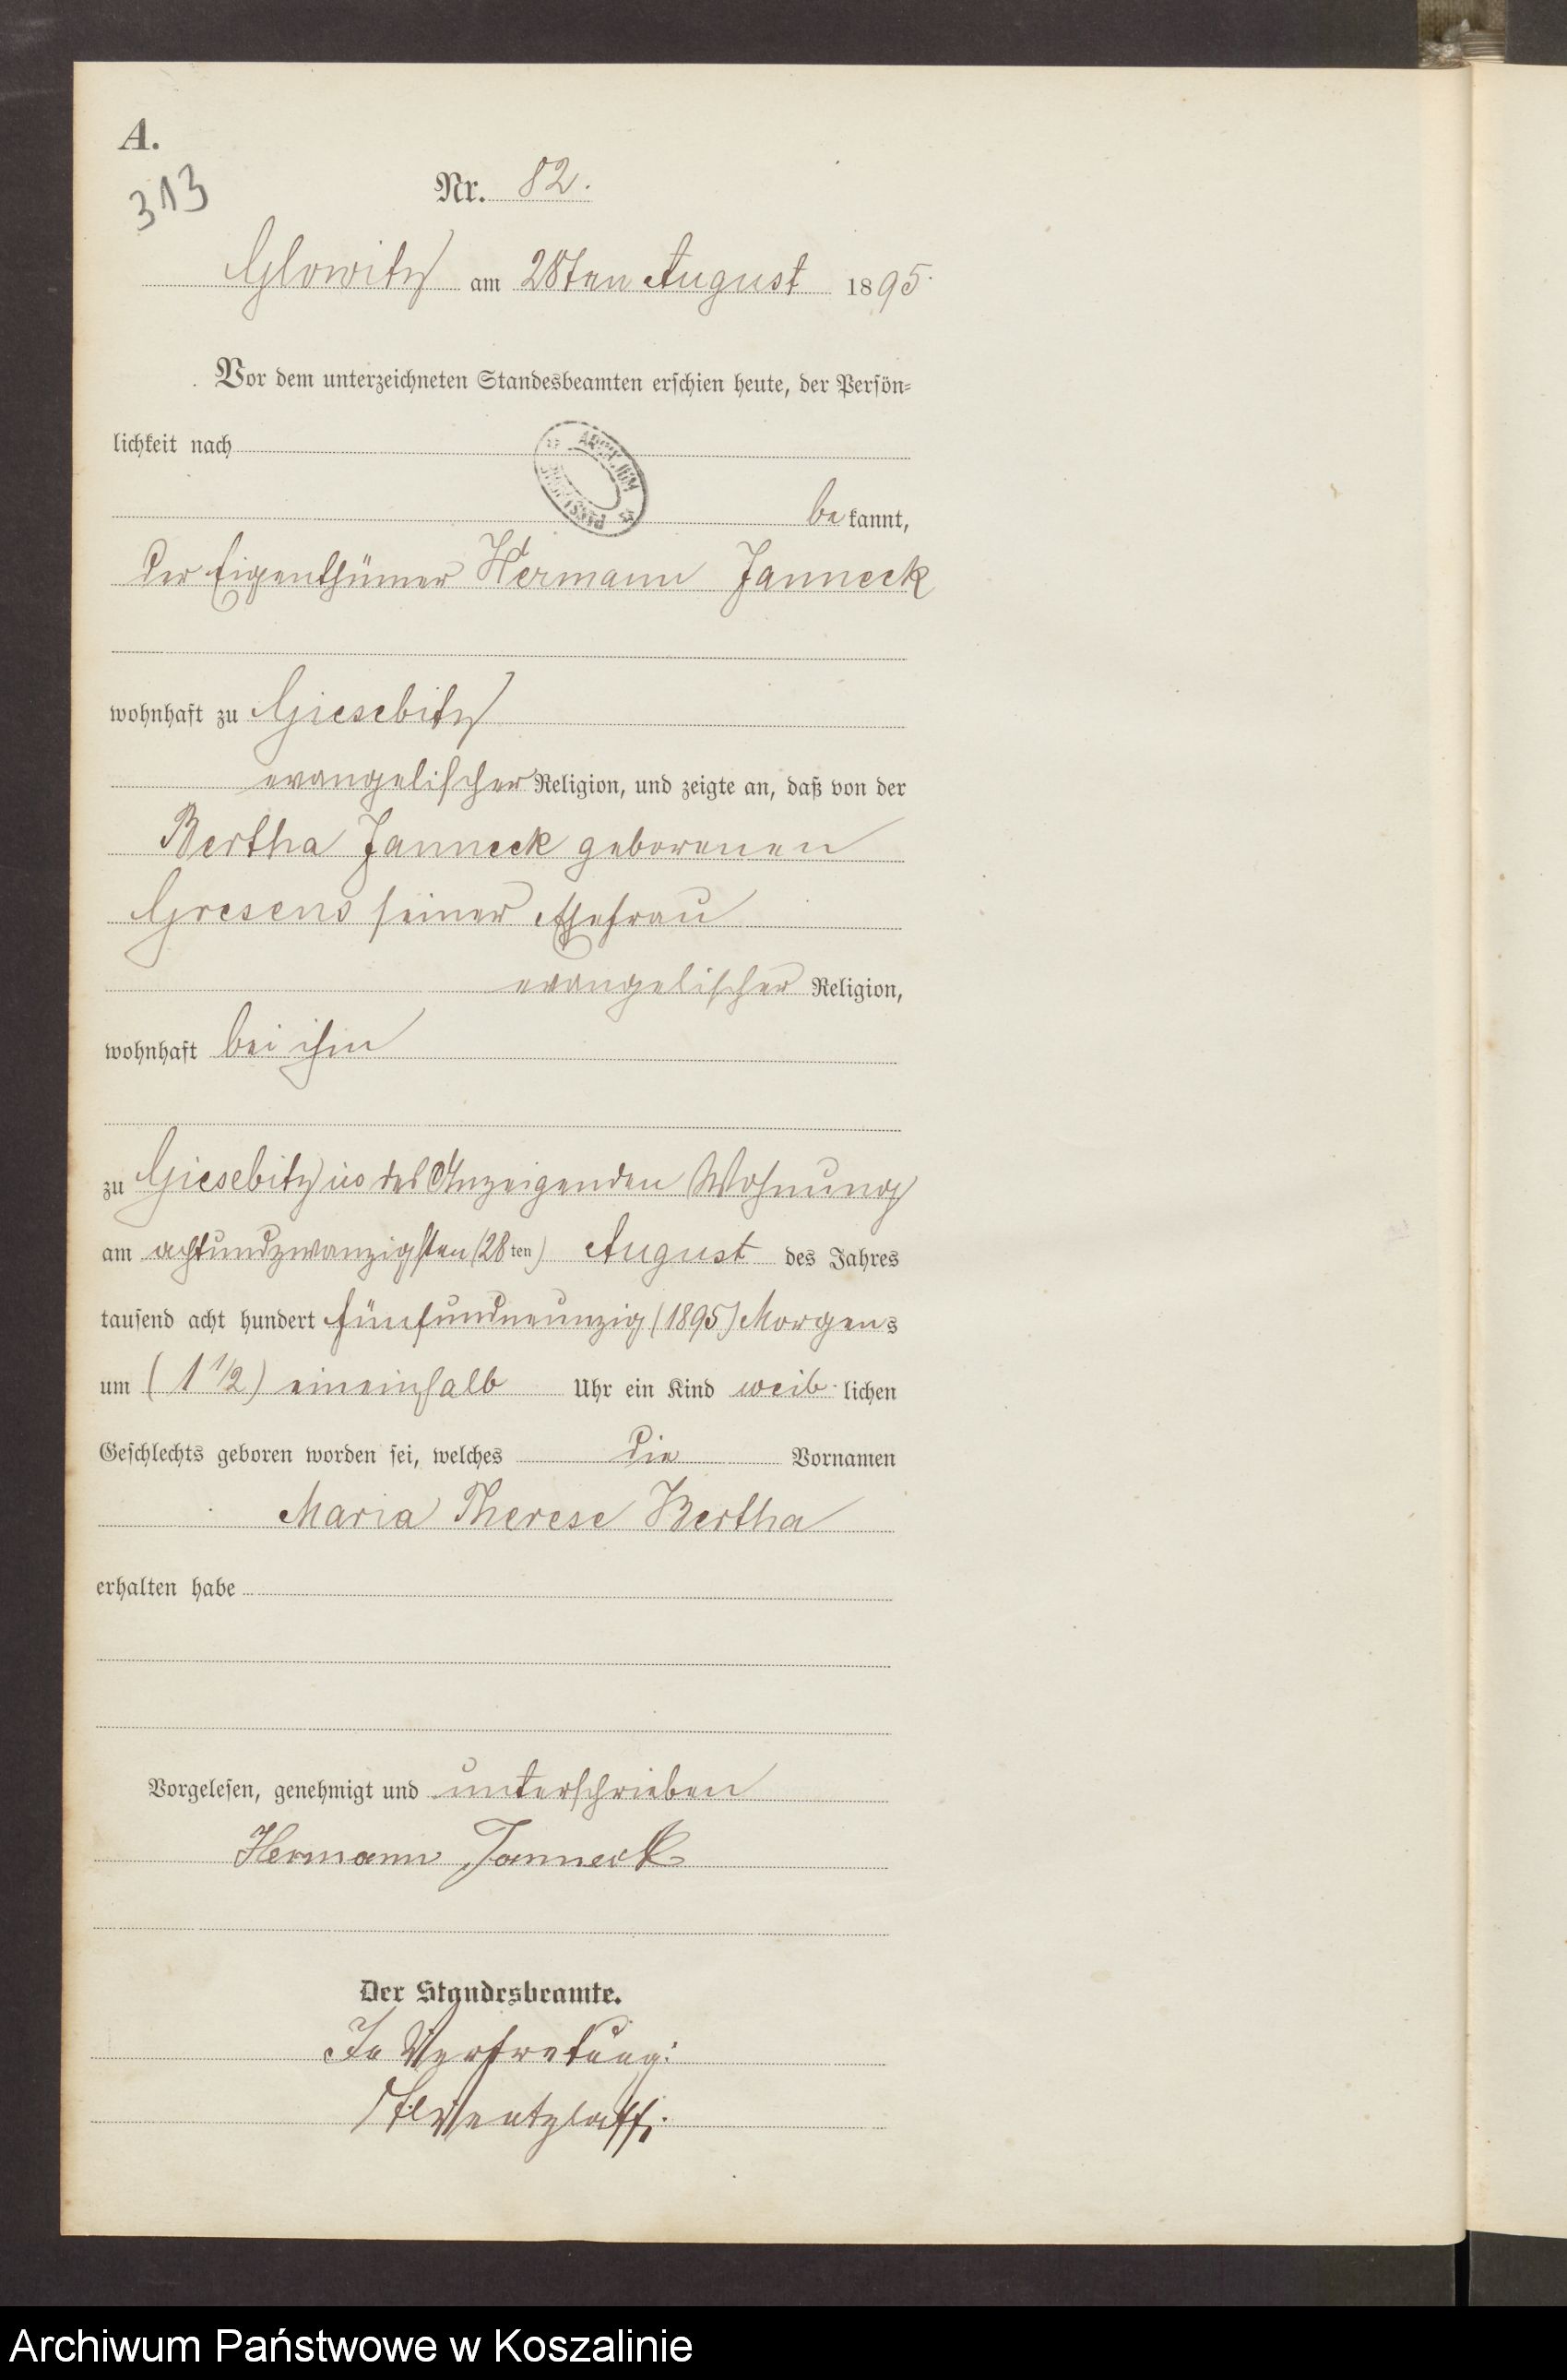 A.
313
Nr. 82.
Glowitz am 28ten August 1895.
Vor dem unterzeichneten Standesbeamten erschien heute, der Persön-
lichkeit nach
ARCHIWUM PAŃSTWOWE
be kannt,
der Eigenthümer Hermann Janneck
wohnhaft zu Giesebitz
evangelischer Religion, und zeigte an, daß von der
Bertha Janneck geborenen
Gresens seiner Ehefrau
evangelischer Religion,
wohnhaft bei ihm
zu Giesebitz in des Anzeigenden Wohnung
am achtundzwanzigsten (28ten) August des Jahres
tausend acht hundert fünfundneunzig (1895) Morgens
um (1 1/2) eineinhalb Uhr ein Kind weib lichen
Geschlechts geboren worden sei, welches die Vornamen
Maria Therese Bertha
erhalten habe
Vorgelesen, genehmigt und unterschrieben
Hermann Janneck
Der Standesbeamte.
In Vertretung:
Wentzlaff.
Archiwum Państwowe w Koszalinie